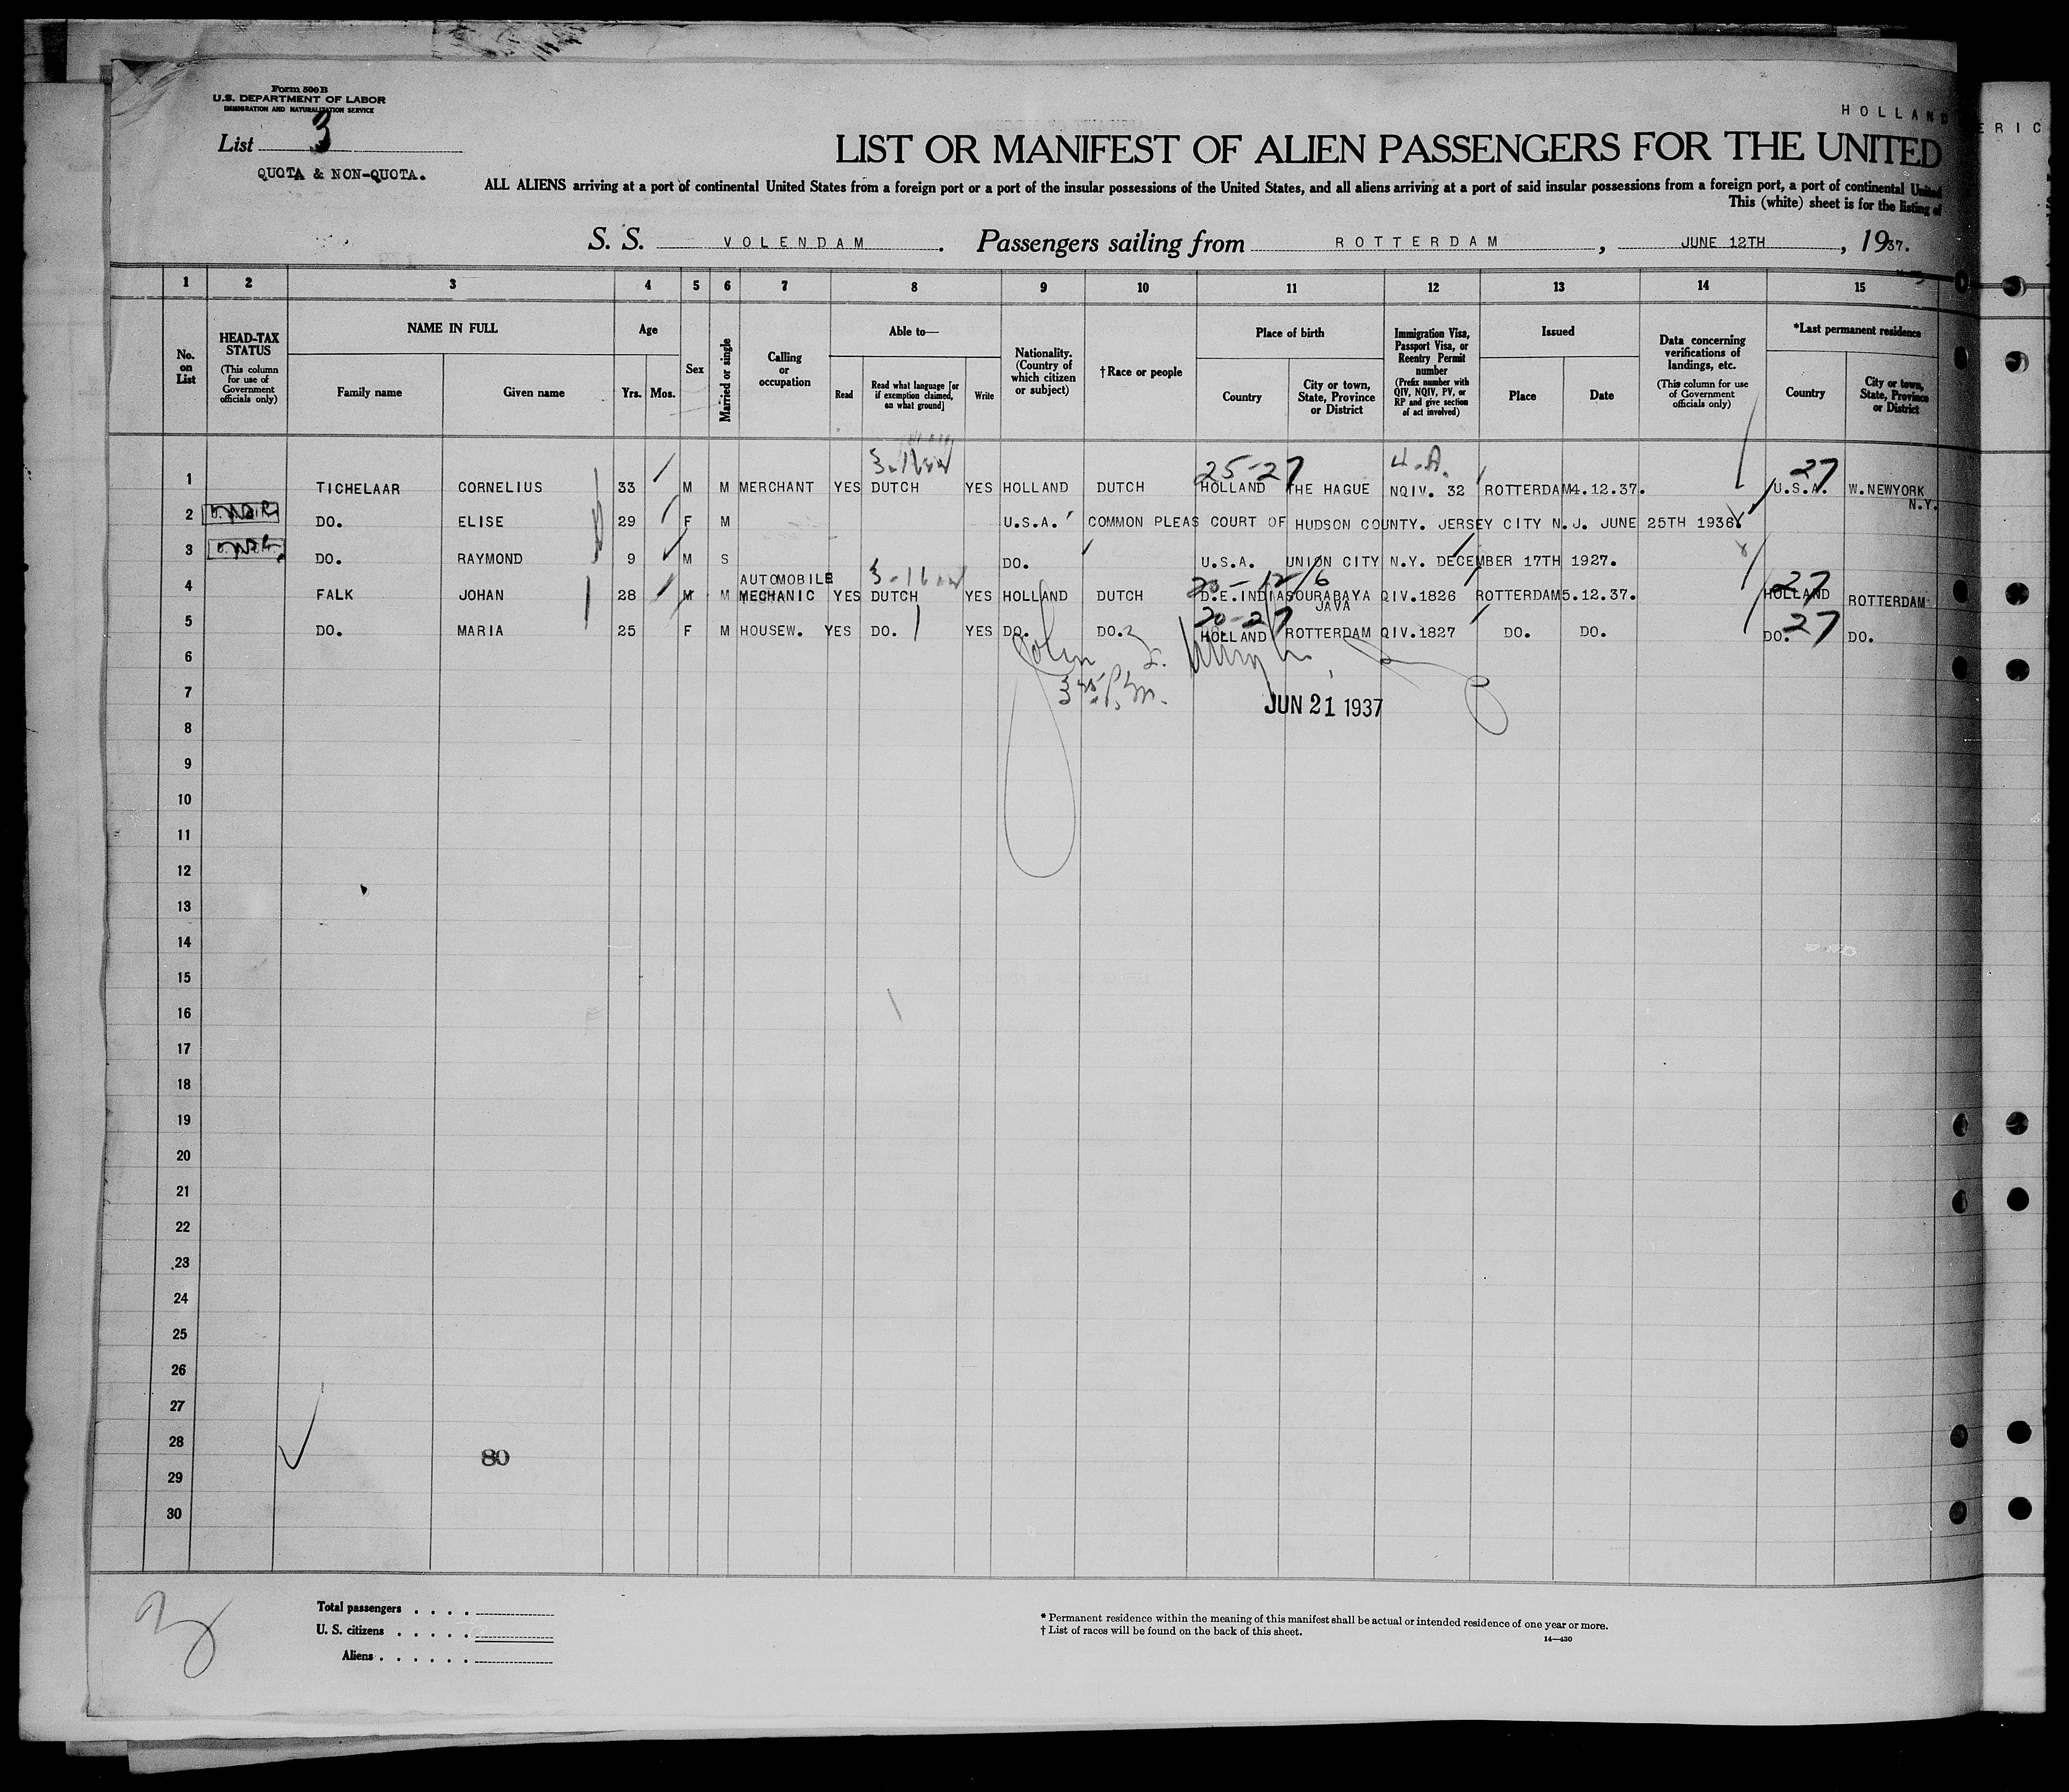 Form 500B
U.S. DEPARTMENT OF LABOR
IMMIGRATION AND NATURALIZATION SERVICE
List 3
QUOTA & NON-QUOTA.
HOLLAND
ERIC
LIST OR MANIFEST OF ALIEN PASSENGERS FOR THE UNITED
ALL ALIENS arriving at a port of continental United States from a foreign port or a port of the insular possessions of the United States, and all aliens arriving at a port of said insular possessions from a foreign port, a port of continental United
This (white) sheet is for the listing of
S. S. VOLENDAM. Passengers sailing from ROTTERDAM, JUNE 12TH, 1937.
1 2 3 4 5 6 7 8 9 10 11 12 13 14 15
No. on List
HEAD-TAX STATUS
(This column for use of Government officials only)
NAME IN FULL
Family name
Given name
Age
Yrs.
Mos.
Sex
Married or single
Calling or occupation
Able to—
Read
Read what language [or if exemption claimed, on what ground]
Write
Nationality. (Country of which citizen or subject)
†Race or people
Place of birth
Country
City or town, State, Province or District
Immigration Visa, Passport Visa, or Reentry Permit number
(Prefix number with QIV, NQIV, PV, or RP and give section of act involved)
Issued
Place
Date
Data concerning verifications of landings, etc.
(This column for use of Government officials only)
*Last permanent residence
Country
City or town, State, Province or District
25-27 4.A. 27
1 TICHELAAR CORNELIUS 33 M M MERCHANT YES DUTCH YES HOLLAND DUTCH HOLLAND THE HAGUE NQIV. 32 ROTTERDAM 4.12.37. U.S.A. W.NEWYORK
N.Y.
2 DO. ELISE 29 F M U.S.A. COMMON PLEAS COURT OF HUDSON COUNTY. JERSEY CITY N.J. JUNE 25TH 1936.
3 DO. RAYMOND 9 M S DO. U.S.A. UNION CITY N.Y. DECEMBER 17TH 1927.
AUTOMOBILE 27
4 FALK JOHAN 28 M M MECHANIC YES DUTCH YES HOLLAND DUTCH D.E.INDIA SOURABAYA QIV.1826 ROTTERDAM 5.12.37. HOLLAND ROTTERDAM
JAVA
20-27 27
5 DO. MARIA 25 F M HOUSEW. YES DO. YES DO. DO. HOLLAND ROTTERDAM QIV.1827 DO. DO. DO. DO.
6
7
JUN 21 1937
8
9
10
11
12
13
14
15
16
17
18
19
20
21
22
23
24
25
26
27
28
80
29
30
3
Total passengers
U. S. citizens
Aliens
* Permanent residence within the meaning of this manifest shall be actual or intended residence of one year or more.
† List of races will be found on the back of this sheet.
14—430